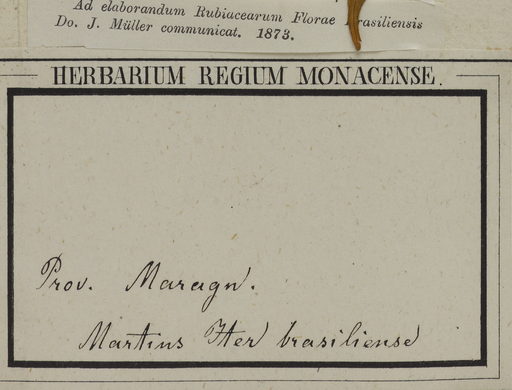 Ad elaborandum Rubiacearum Florae Brasiliensis
Do. J. Müller communicat. 1873.
HERBARIUM REGIUM MONACENSE.
Prov. Maragn.
Martius Iter brasiliense